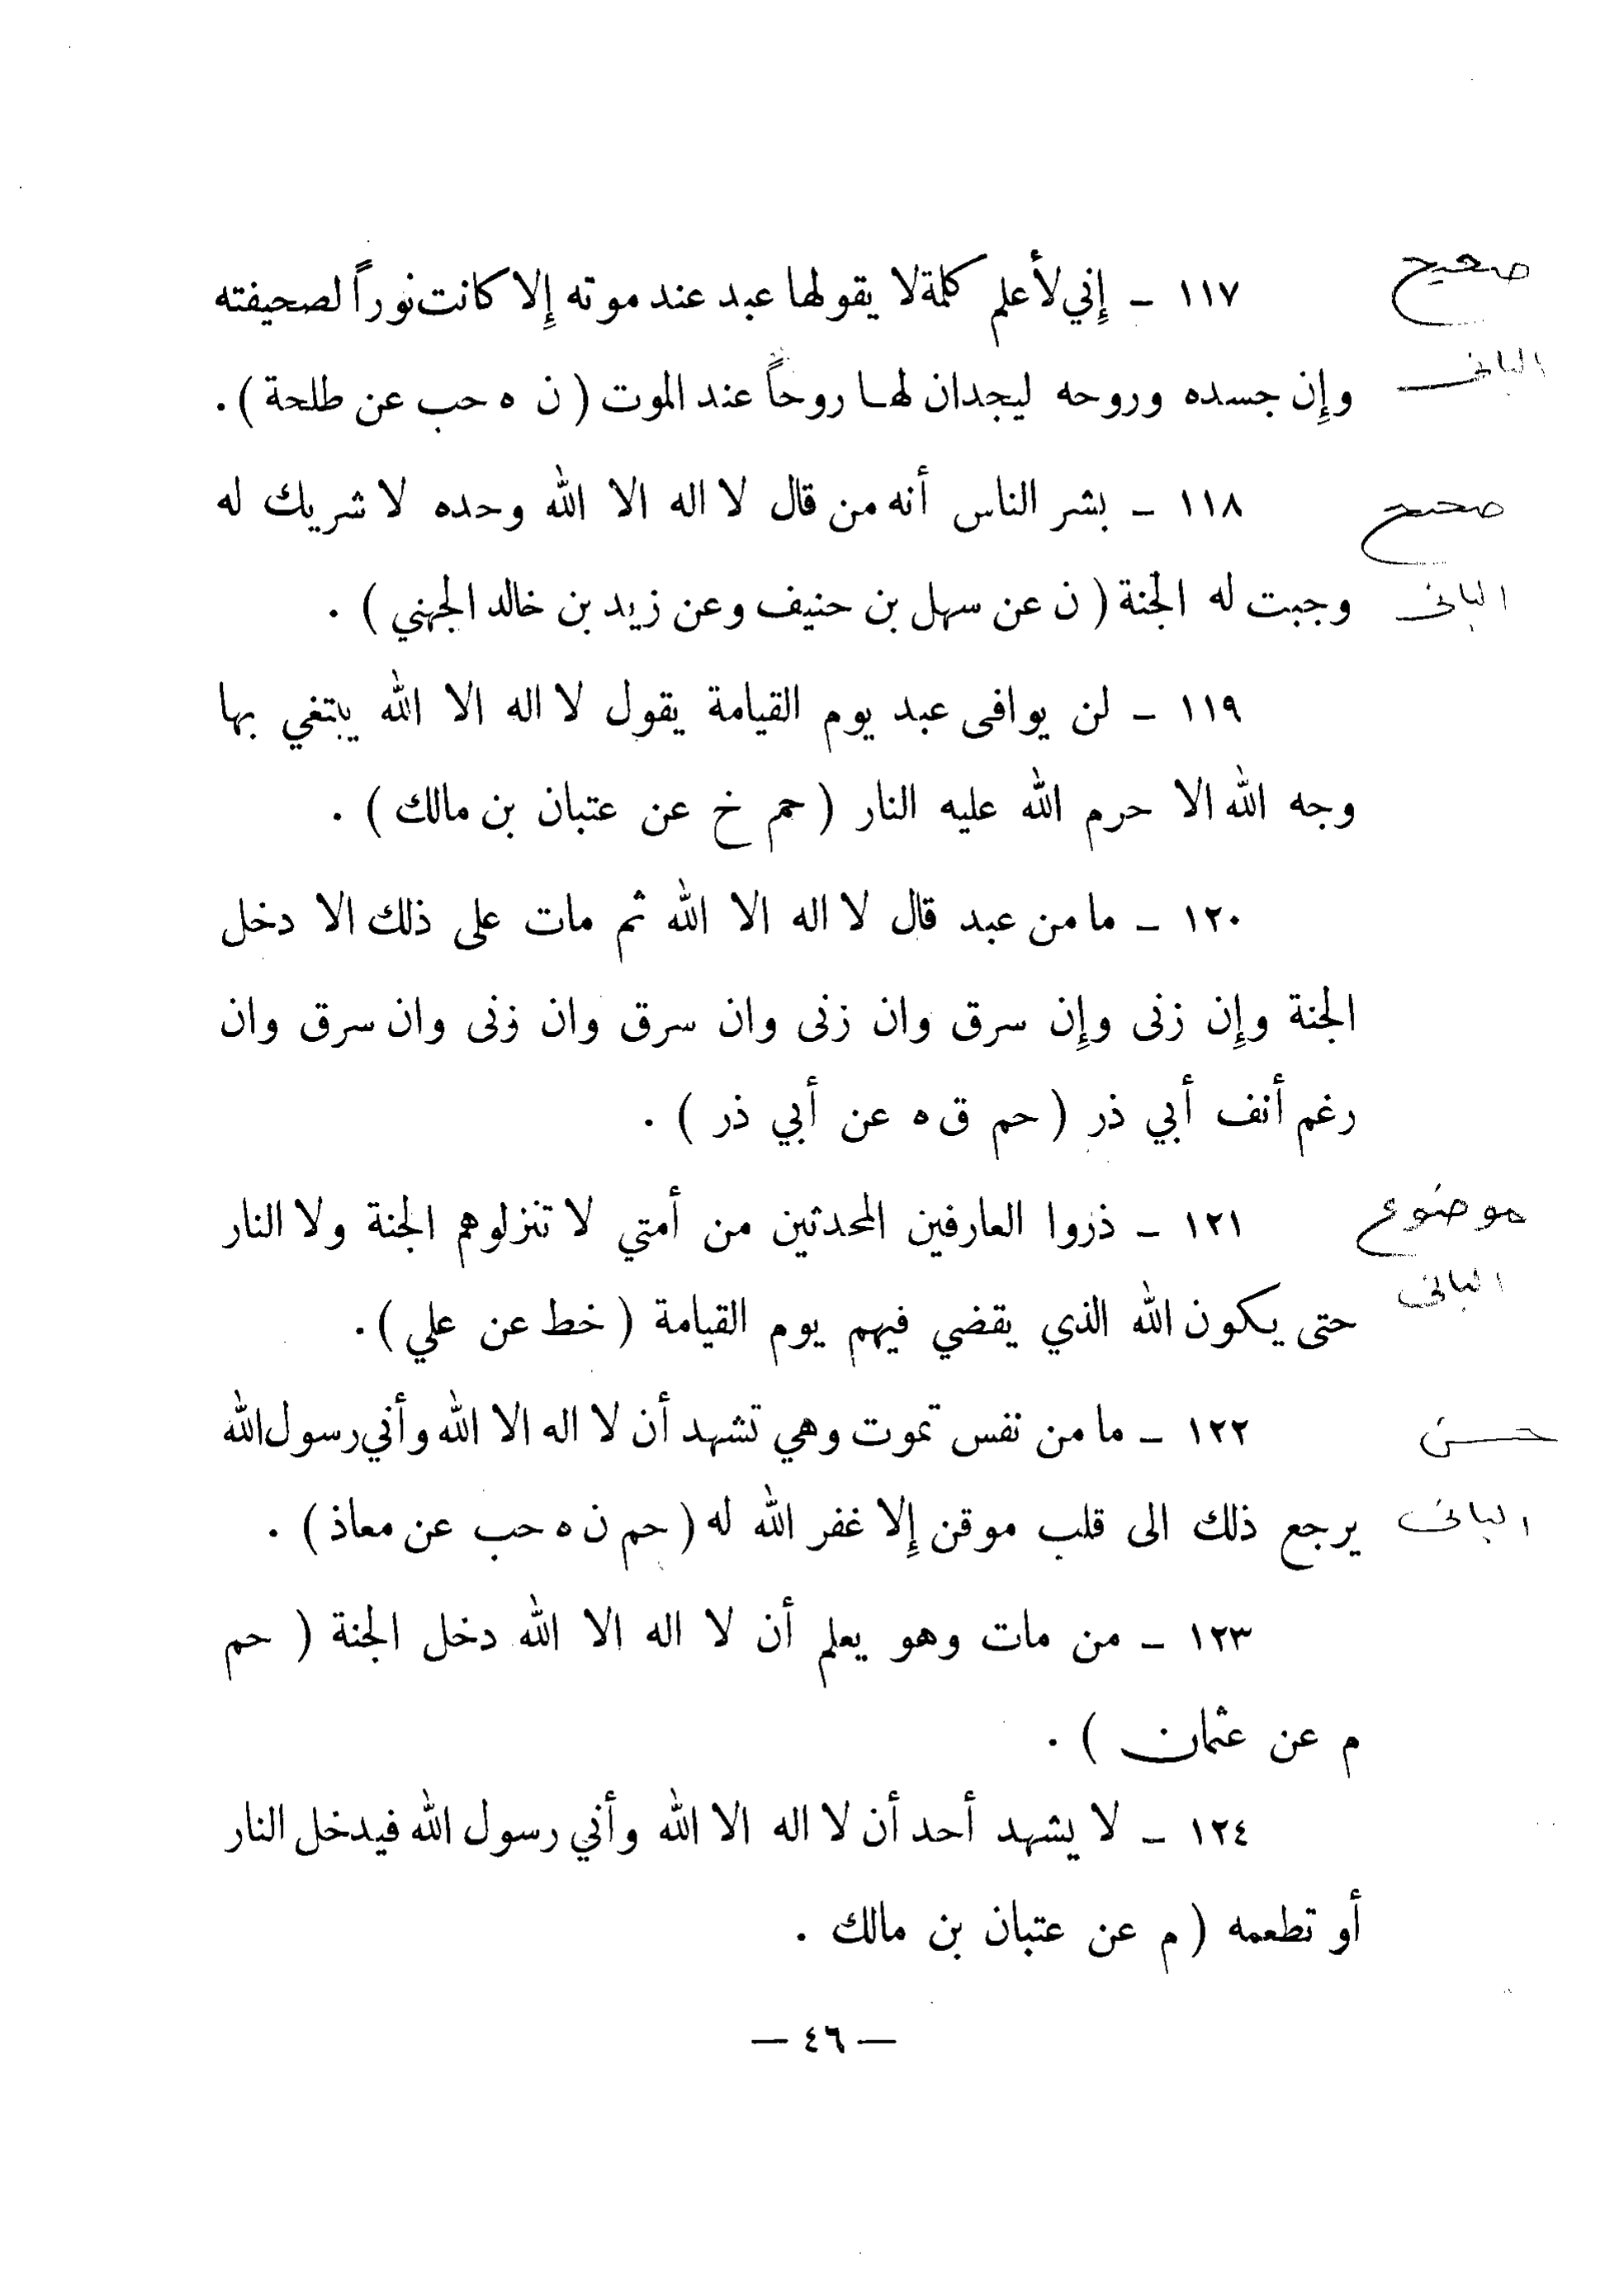 ١١٧ ـ إِني لأعلم كلمة لا يقولها عبد عند موته إِلا كانت نوراً لصحيفته
صحيح
وإِن جسده وروحه ليجدان لها روحاً عند الموت ( ن ه حب عن طلحة ) .
البانى
١١٨ ـ بشر الناس أنه من قال لا اله الا الله وحده لا شريك له
صحيح
وجبت له الجنة ( ن عن سهل بن حنيف وعن زيد بن خالد الجهني ) .
البانى
١١٩ ـ لن يوافى عبد يوم القيامة يقول لا اله الا الله يبتغي بها
وجه الله الا حرم الله عليه النار ( حم خ عن عتبان بن مالك ) .
١٢٠ ـ ما من عبد قال لا اله الا الله ثم مات على ذلك الا دخل
الجنة وإِن زنى وإِن سرق وان زنى وان سرق وان زنى وان سرق وان
رغم أنف أبي ذر ( حم ق ه عن أبي ذر ) .
١٢١ ـ ذروا العارفين المحدثين من أمتي لا تنزلوهم الجنة ولا النار
موضوع
حتى يكون الله الذي يقضي فيهم يوم القيامة ( خط عن علي ) .
البانى
١٢٢ ـ ما من نفس تموت وهي تشهد أن لا اله الا الله وأني رسول الله
حسن
يرجع ذلك الى قلب موقن إِلا غفر الله له ( حم ن ه حب عن معاذ ) .
البانى
١٢٣ ـ من مات وهو يعلم أن لا اله الا الله دخل الجنة ( حم
م عن عثمان ) .
١٢٤ ـ لا يشهد أحد أن لا اله الا الله وأني رسول الله فيدخل النار
أو تطعمه ( م عن عتبان بن مالك .
— ٤٦ —